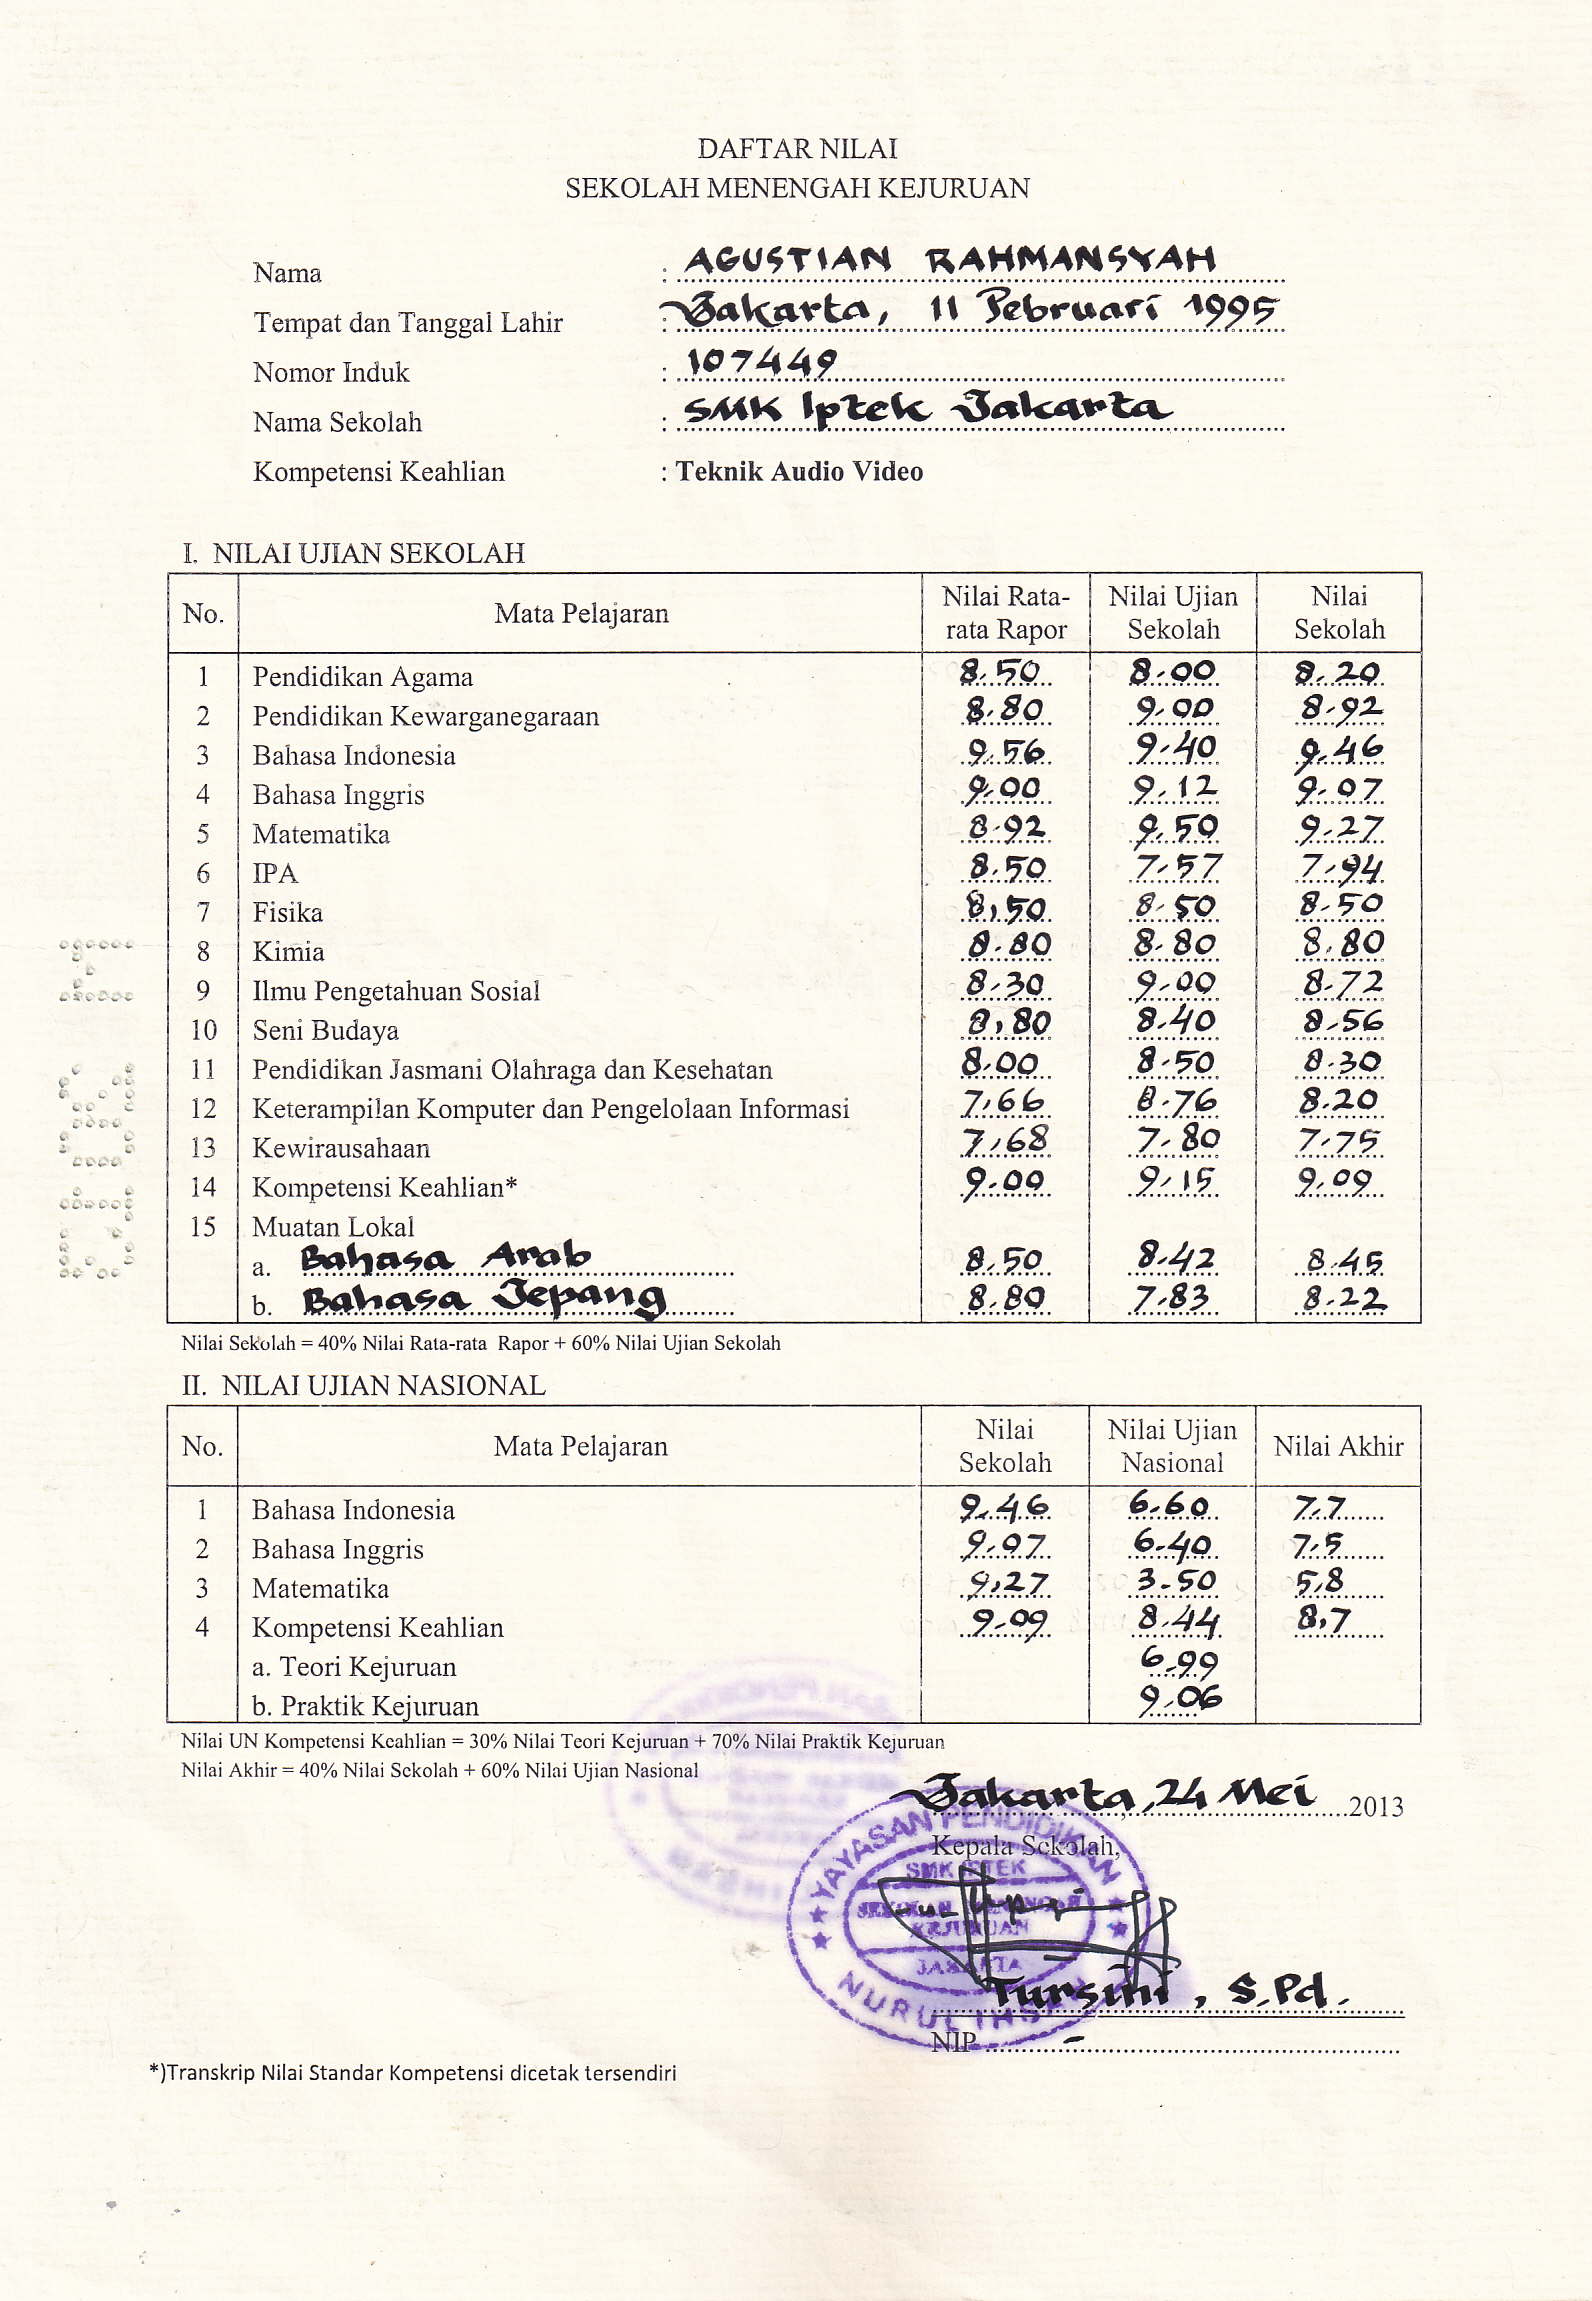 DAFTAR NILAI
SEKOLAH MENENGAH KEJURUAN
Nama : AGUSTIAN RAHMANSYAH
Tempat dan Tanggal Lahir : Jakarta, 11 Pebruari 1995
Nomor Induk : 107449
Nama Sekolah : SMK Iptek Jakarta
Kompetensi Keahlian : Teknik Audio Video
I. NILAI UJIAN SEKOLAH
No. Mata Pelajaran Nilai Rata-rata Rapor Nilai Ujian Sekolah Nilai Sekolah
1 Pendidikan Agama 8,50 8,00 8,20
2 Pendidikan Kewarganegaraan 8,80 9,00 8,92
3 Bahasa Indonesia 9,56 9,40 9,46
4 Bahasa Inggris 9,00 9,12 9,07
5 Matematika 8,92 9,50 9,27
6 IPA 8,50 7,57 7,94
7 Fisika 8,50 8,50 8,50
8 Kimia 8,80 8,80 8,80
9 Ilmu Pengetahuan Sosial 8,30 9,00 8,72
10 Seni Budaya 8,80 8,40 8,56
11 Pendidikan Jasmani Olahraga dan Kesehatan 8,00 8,50 8,30
12 Keterampilan Komputer dan Pengelolaan Informasi 7,66 8,76 8,20
13 Kewirausahaan 7,68 7,80 7,75
14 Kompetensi Keahlian* 9,00 9,15 9,09
15 Muatan Lokal
a. Bahasa Arab 8,50 8,42 8,45
b. Bahasa Jepang 8,80 7,83 8,22
Nilai Sekolah = 40% Nilai Rata-rata Rapor + 60% Nilai Ujian Sekolah
II. NILAI UJIAN NASIONAL
No. Mata Pelajaran Nilai Sekolah Nilai Ujian Nasional Nilai Akhir
1 Bahasa Indonesia 9,46 6,60 7,7
2 Bahasa Inggris 9,07 6,40 7,5
3 Matematika 9,27 3,50 5,8
4 Kompetensi Keahlian 9,09 8,44 8,7
a. Teori Kejuruan 6,99
b. Praktik Kejuruan 9,06
Nilai UN Kompetensi Keahlian = 30% Nilai Teori Kejuruan + 70% Nilai Praktik Kejuruan
Nilai Akhir = 40% Nilai Sekolah + 60% Nilai Ujian Nasional
Jakarta, 24 Mei 2013
Kepala Sekolah,
YAYASAN PENDIDIKAN
SMK IPTEK
SEKOLAH MENENGAH
KEJURUAN
JAKARTA
NURUL IHSAN
Tursini, S.Pd.
NIP -
*)Transkrip Nilai Standar Kompetensi dicetak tersendiri